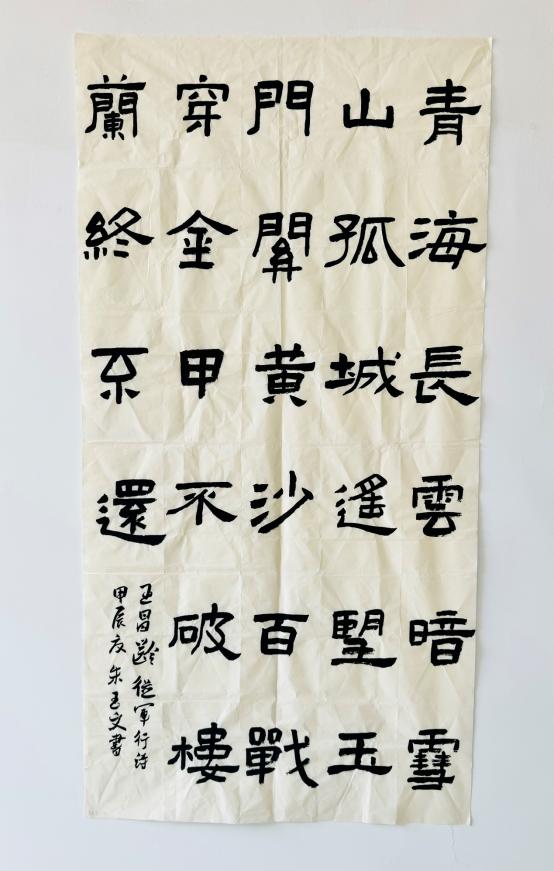 青海長雲暗雪
山孤城遥望玉
門關黄沙百戰
穿金甲不破樓
蘭終不還
王昌齡從軍行詩
甲辰夏朱玉文書